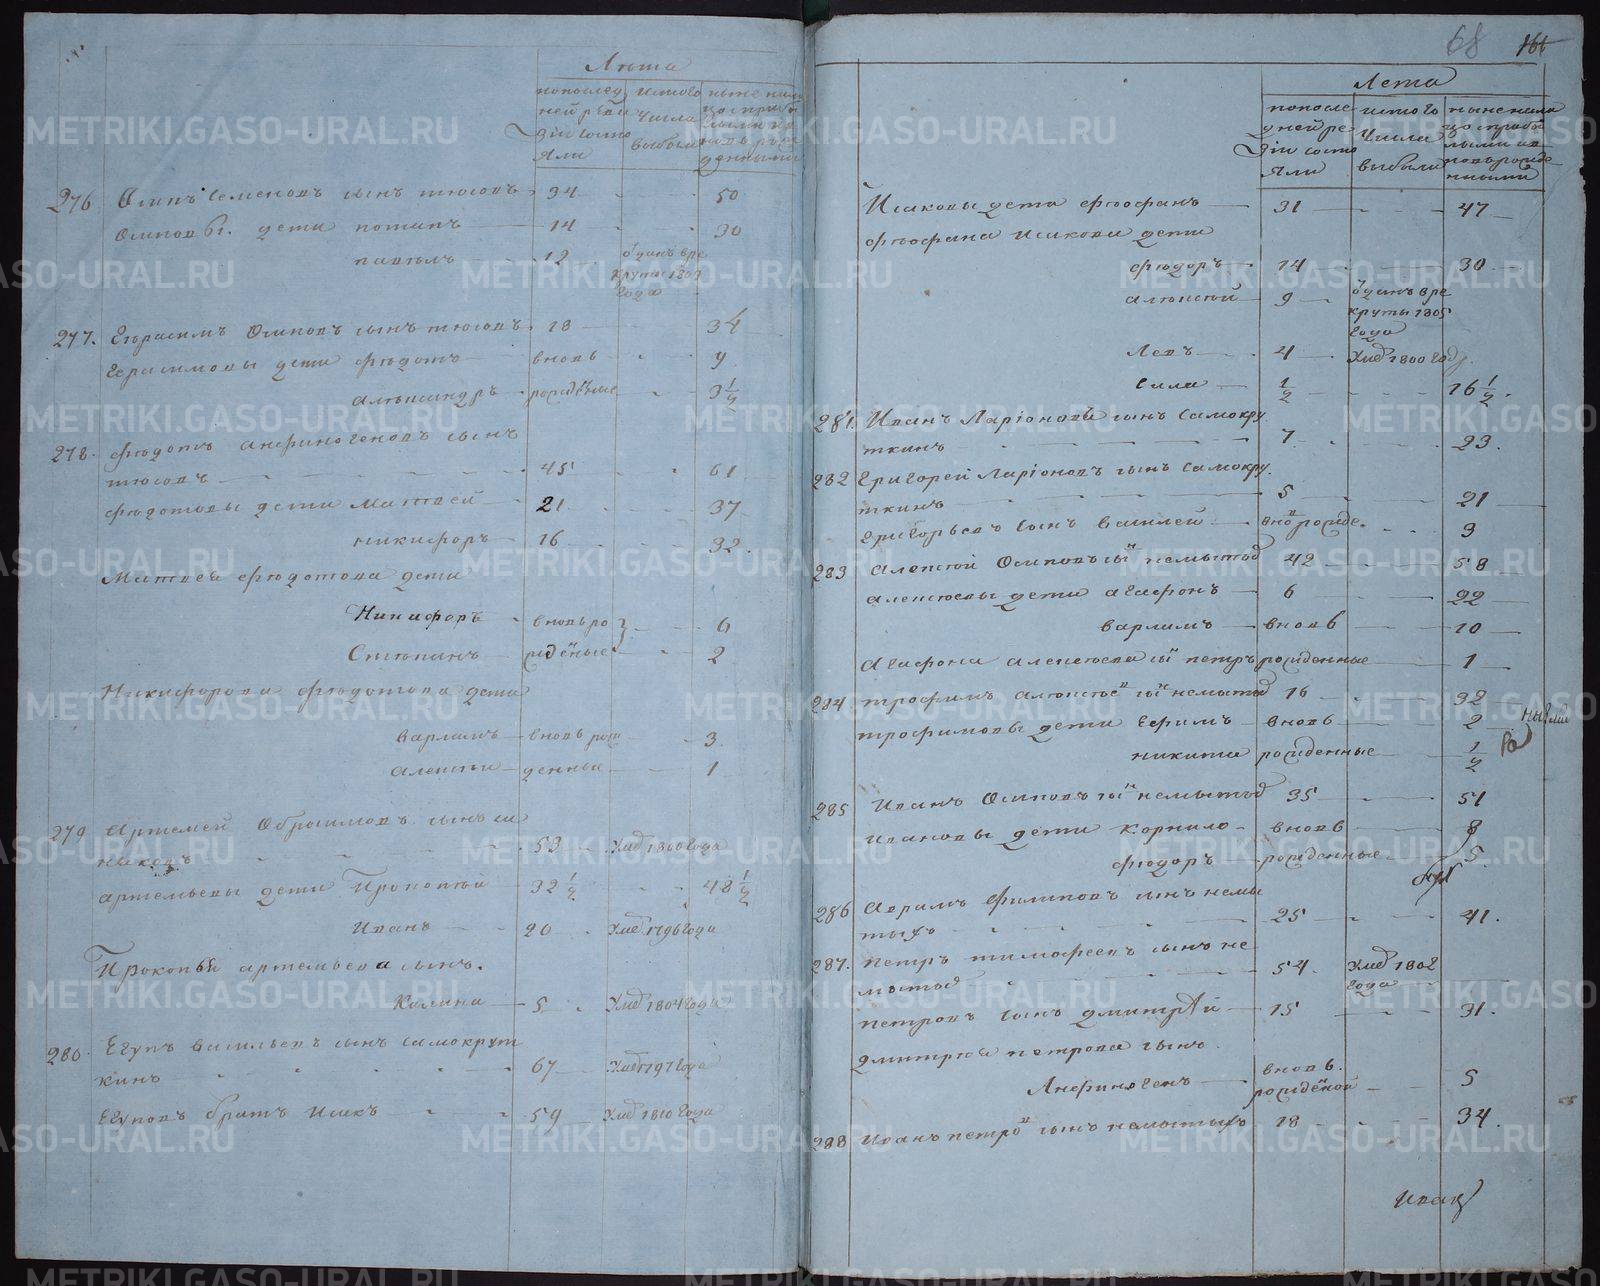 Лѣта
попослед
ней реви
зіи состо
яли
истого
числа
выбыло
ныне нали
цо с прибы
лыми и в
новь рож
денными
276 Осипъ Семеновъ сынъ тюсовъ 34 50
Осиповы дети потапъ 14 30
павѣлъ 12 одданъ в ре
круты 1807
года
277. Герасимъ Осиповъ сынъ тюсовъ 18 34
Герасимовы дети Федотъ вновь 9
александръ рожденые 3 1/2
278. Федотъ анфиногеновъ сынъ
тюсовъ 45 61
Федотовы дети Матвей 21 37
никифоръ 16 32.
Матвея Федотова дети
Никифоръ вновь ро 6
Степанъ жденые 2
Никифорова Федотова дети
варламъ вновь рож 3
алексей денные 1
279 Артемей Обросимовъ сынъ
никовъ 53 Умѣ 1800 года
артемьевы дети Прокопей 32 1/2 48 1/2
Иванъ 20 Умѣ 1796 года
Прокопья артемьева сынъ.
Калина 5 Умѣ 1804 года
280. Егупъ васильевъ сынъ самокрут
кинъ 67 Умѣ 1797 года
Егуповъ братъ Исакъ 59 Умѣ 1810 года
68 166
Лета
попосле
дней ре
візіи состо
яли
истого
числа
выбыли
ныне нали
цо с прибы
лыми и в
новь рожде
нными
Исаковы дети феофанъ 31 47
феофана Исакова дети
федоръ 14 30
алексей 9 одданъ в ре
круты 1805
года
Левъ 4 Умѣ 1800 году
Сила 1/2 16 1/2.
281. Иванъ Ларіоновъ сынъ Самокру
ткинъ 7 23.
282 Григорей Ларіоновъ сынъ самокру.
ткинъ 5 21
Григорьевъ сынъ василей вновь рожде. 3
283 Алексей Осиповъ сынъ немытов 42 58
алексеевы дети агафонъ 6 22
варламъ вновь 10
Агафона алексеева сынъ петръ рожденные 1
284. трофимъ алексеевъ сынъ немытов 16 32
трофимовы дети Ефимъ вновь 2
никита рожденные 1/2
285 Иванъ Осиповъ сынъ немытов 35 51
Ивановы дети корнило вновь 8
федоръ рожденные 5
286 Аврамъ Филиповъ сынъ немы
тыхъ 25 41.
287. петръ тимофеевъ сынъ не
мытов 54. Умѣ 1802
года
петровъ сынъ дмитрей 15 31.
дмитрея петрова сынъ
Анфиногенъ вновь.
рожденой 5
288 Иванъ петровъ сынъ немытыхъ 18 34.